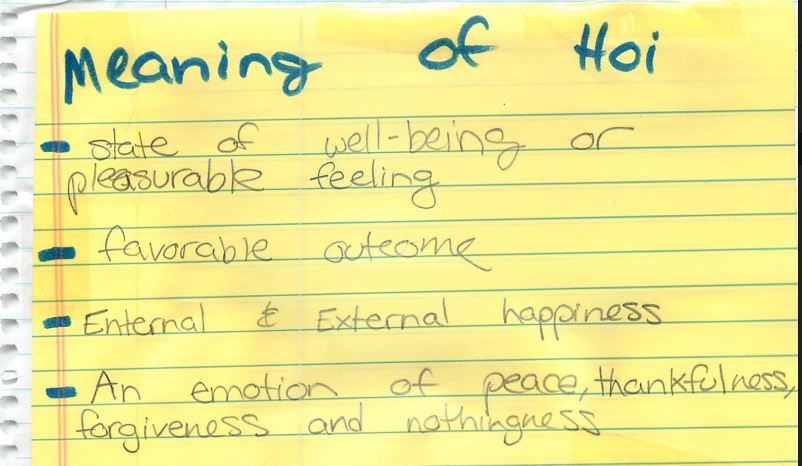 Meaning of Hoi
- state of well-being or
pleasurable feeling
- favorable outcome
- Enternal & External happiness
- An emotion of peace, thankfulness,
forgiveness and nothingness